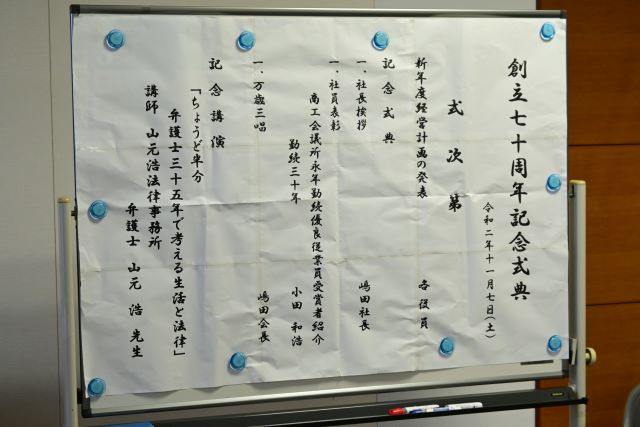 創立七十周年記念式典
令和二年十一月七日(土)
式次第
新年度経営計画の発表　各役員
記念式典
一、社長挨拶　嶋田社長
一、社員表彰
商工会議所永年勤続優良従業員受賞者紹介
勤続三十年　小田和浩
一、万歳三唱　嶋田会長
記念講演
「ちょうど半分
弁護士三十五年で考える生活と法律」
講師　山元浩法律事務所
弁護士　山元　浩　先生